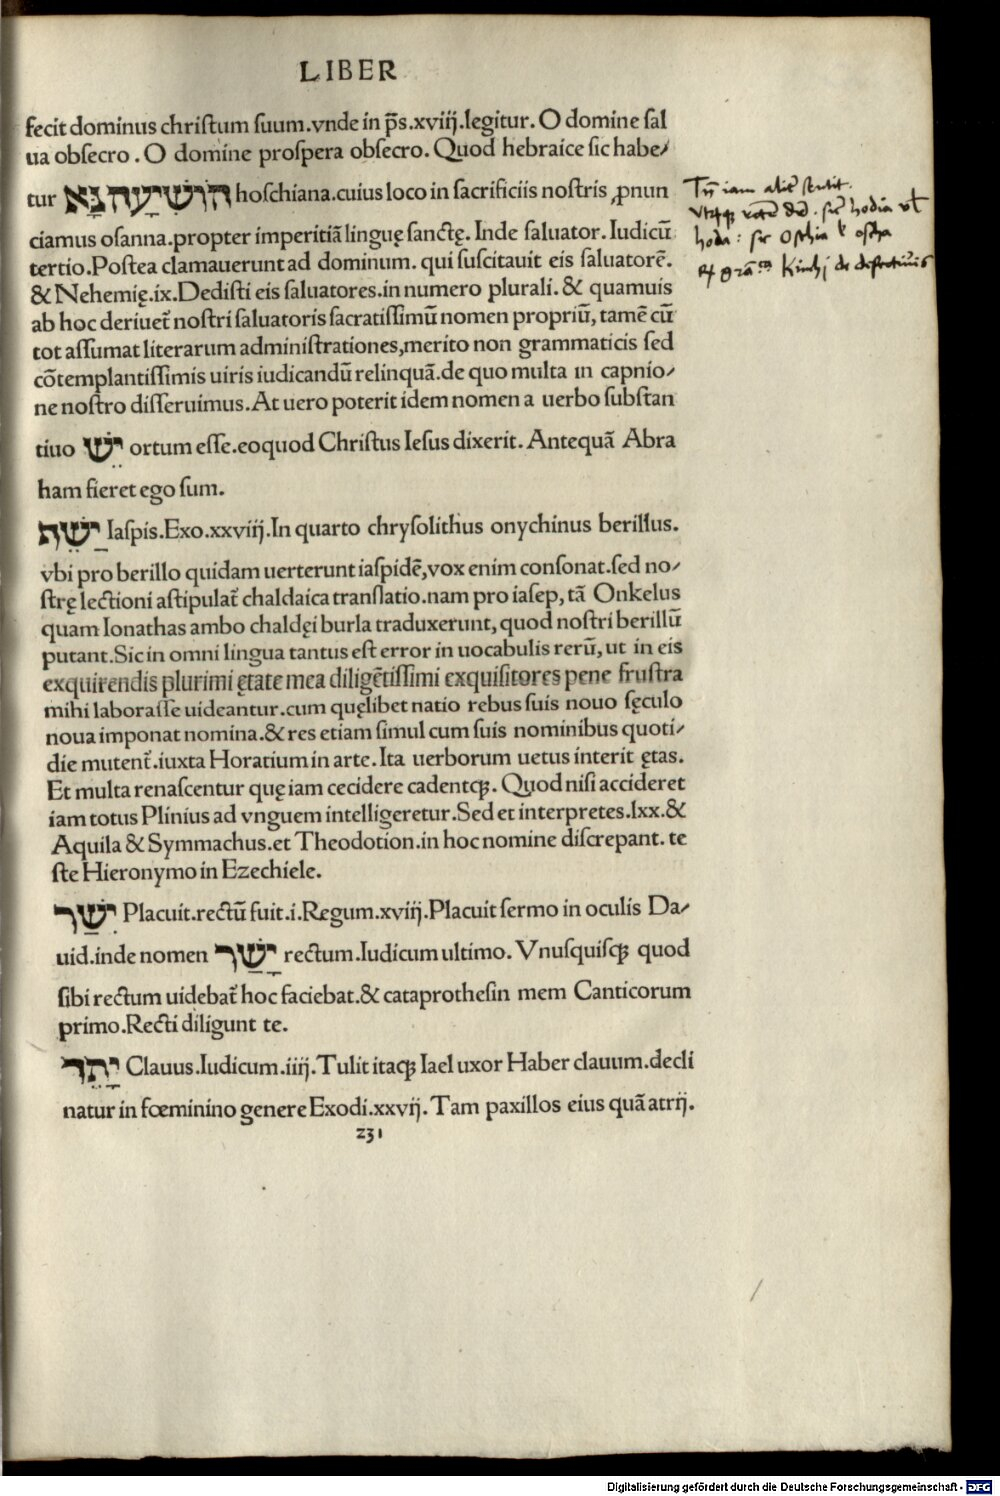 LIBER
fecit dominus christum suum.vnde in p̄s.xviij.legitur. O domine sal
ua obsecro . O domine prospera obsecro. Quod hebraice sic habe/
tur הוֹשִׁיעָה נָּא hoschiana.cuius loco in sacrificiis nostris ꝓnun
ciamus osanna.propter imperitiā linguę sanctę. Inde saluator. Iudicū
tertio.Postea clamauerunt ad dominum. qui suscitauit eis saluatorē.
& Nehemię.ix.Dedisti eis saluatores.in numero plurali. & quamuis
ab hoc deriuet̄ nostri saluatoris sacratissimū nomen propriū, tamē cū
tot assumat literarum administrationes,merito non grammaticis sed
cōtemplantissimis uiris iudicandū relinquā.de quo multa in capnio/
ne nostro disseruimus. At uero poterit idem nomen a uerbo substan
tiuo יֵשׁ ortum esse.eoquod Christus Iesus dixerit. Antequā Abra
ham fieret ego sum.
יַשֵׁה Iaspis.Exo.xxviij.In quarto chrysolithus onychinus berillus.
vbi pro berillo quidam uerterunt iaspidē,vox enim consonat.sed no/
strę lectioni astipulat̄ chaldaica translatio.nam pro iasep, tā Onkelus
quam Ionathas ambo chaldęi burla traduxerunt, quod nostri berillū
putant.Sic in omni lingua tantus est error in uocabulis rerū, ut in eis
exquirendis plurimi ętate mea diligētissimi exquisitores pene frustra
mihi laborasse uideantur.cum quęlibet natio rebus suis nouo sęculo
noua imponat nomina.& res etiam simul cum suis nominibus quoti/
die mutent̄.iuxta Horatium in arte. Ita uerborum uetus interit ętas.
Et multa renascentur quę iam cecidere cadentqꝫ. Quod nisi accideret
iam totus Plinius ad vnguem intelligeretur. Sed et interpretes.lxx.&
Aquila & Symmachus.et Theodotion.in hoc nomine discrepant. te
ste Hieronymo in Ezechiele.
יִשַׁר Placuit.rectū fuit.i.Regum.xviij.Placuit sermo in oculis Da/
uid.inde nomen יָשַׁר rectum.Iudicum ultimo. Vnusquisqꝫ quod
sibi rectum uidebat̄ hoc faciebat.& cataprothesin mem Canticorum
primo.Recti diligunt te.
יָתֵד Clauus.Iudicum.iiij.Tulit itaqꝫ Iael uxor Haber clauum.decli
natur in fœminino genere Exodi.xxvij. Tam paxillos eius quā atrij.
231
iam
hodia
hoda : Oschia
Kimhj de
Digitalisierung gefördert durch die Deutsche Forschungsgemeinschaft - DFG